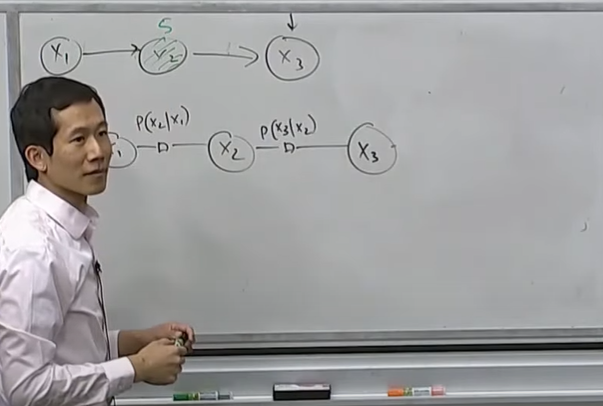 S
X₁ X₂ X₃
p(x₂|x₁) p(x₃|x₂)
₁ X₂ X₃